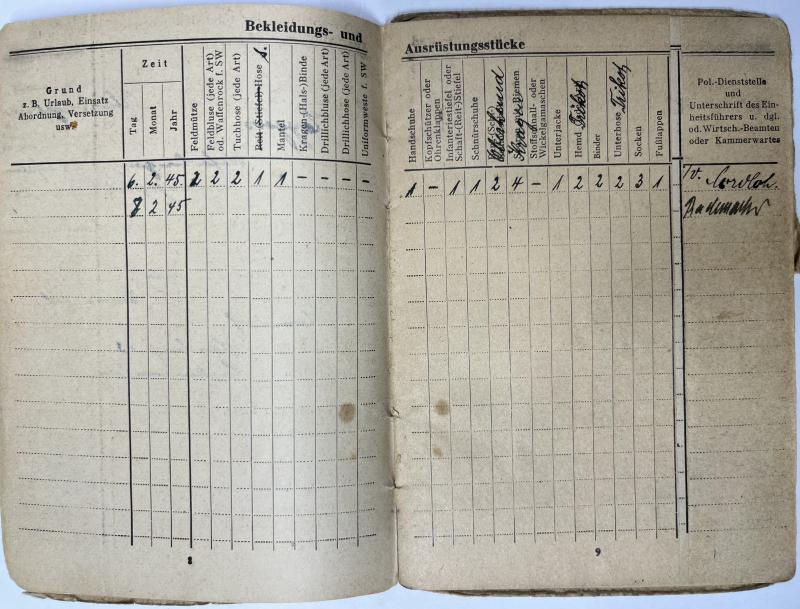 Bekleidungs- und
Grund
z. B. Urlaub, Einsatz
Abordnung, Versetzung
usw.
Zeit
Tag
Monat
Jahr
Feldmütze
Feldbluse (jede Art)
od. Waffenrock f. SW
Tuchhose (jede Art)
Reit-(Stiefel)-Hose
Mantel
Kragen-(Hals-)Binde
Drillichbluse (jede Art)
Drillichhose (jede Art)
Uniformweste f. SW
6. 2. 45. 2 2 2 1 1 – – – –
8 2 45
8
Ausrüstungsstücke
Handschuhe
Kopfschützer oder
Ohrenklappen
Infanteriestiefel oder
Schaft-(Reit-)Stiefel
Schnürschuhe
Kragen
Riemen
Stoffgamasch.- oder
Wickelgamaschen
Unterjacke
Hemd Trikot
Binder
Unterhose Trikot
Socken
Fußlappen
Pol.-Dienststelle
und
Unterschrift des Ein-
heitsführers u. dgl.
od. Wirtsch.-Beamten
oder Kammerwartes
1 – 1 1 2 4 – 1 2 2 2 3 1
9